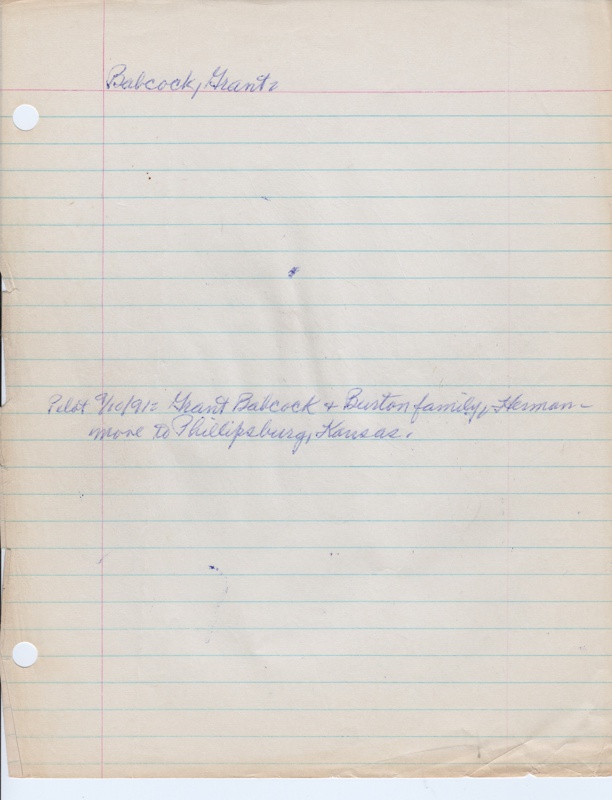 Babcock, Grant
Pilot 9/10/91: Grant Babcock & Burton family, Herman-
move to Phillipsburg, Kansas.